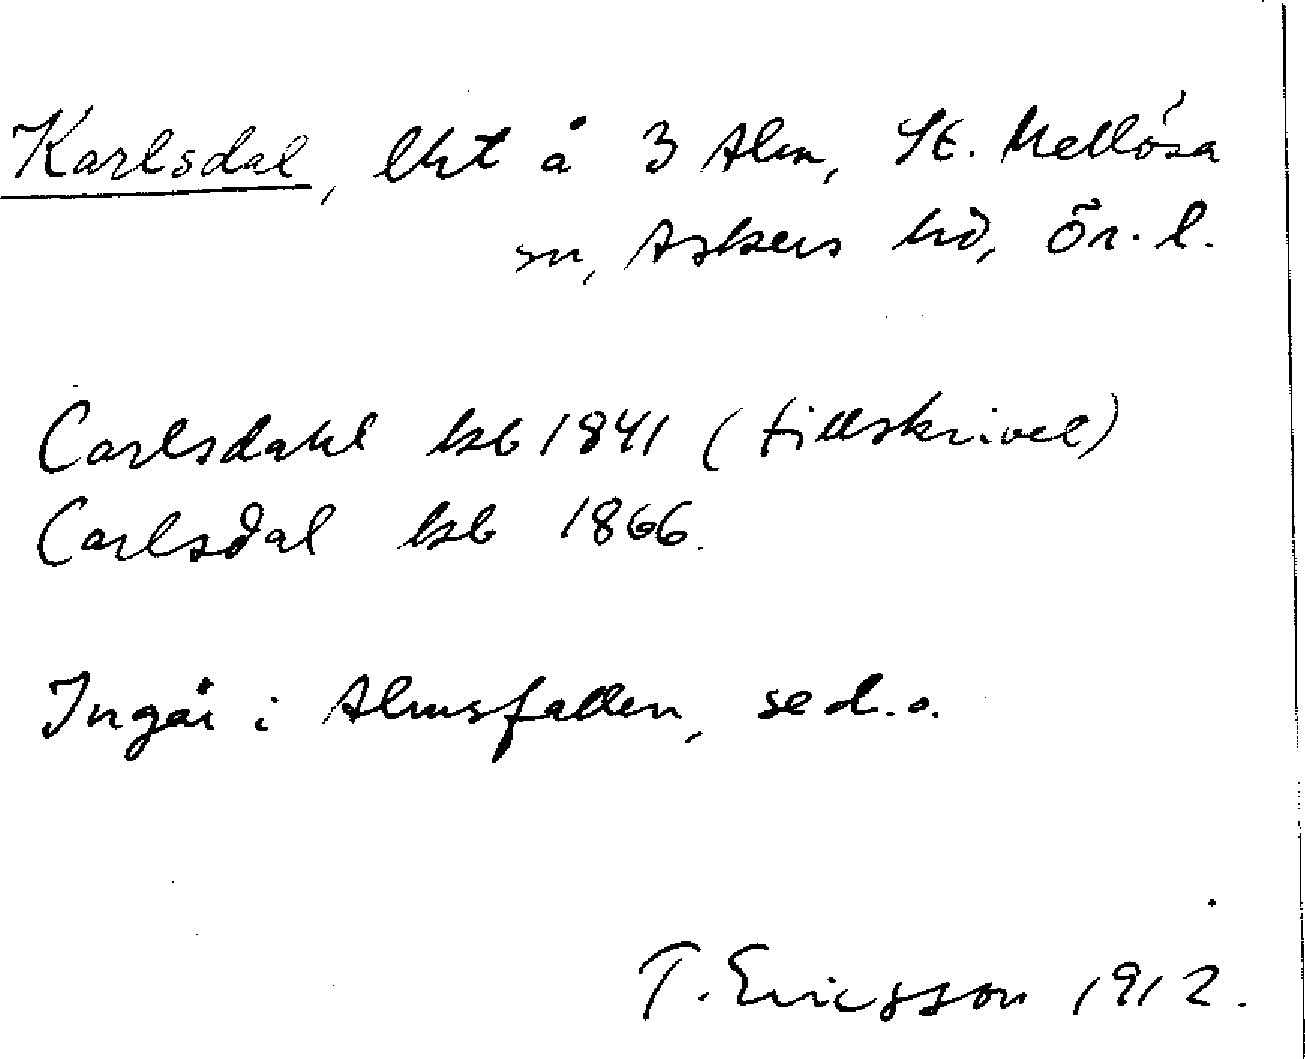 Karlsdal, lht å 3 Alm, St. Mellösa
sn, Askers hd, Ör. l.
Carlsdahl hsb 1841 (tillskrivet)
Carlsdal hsb 1866.
Ingår i Almsfallen, se d.o.
T. Ericsson 1912.